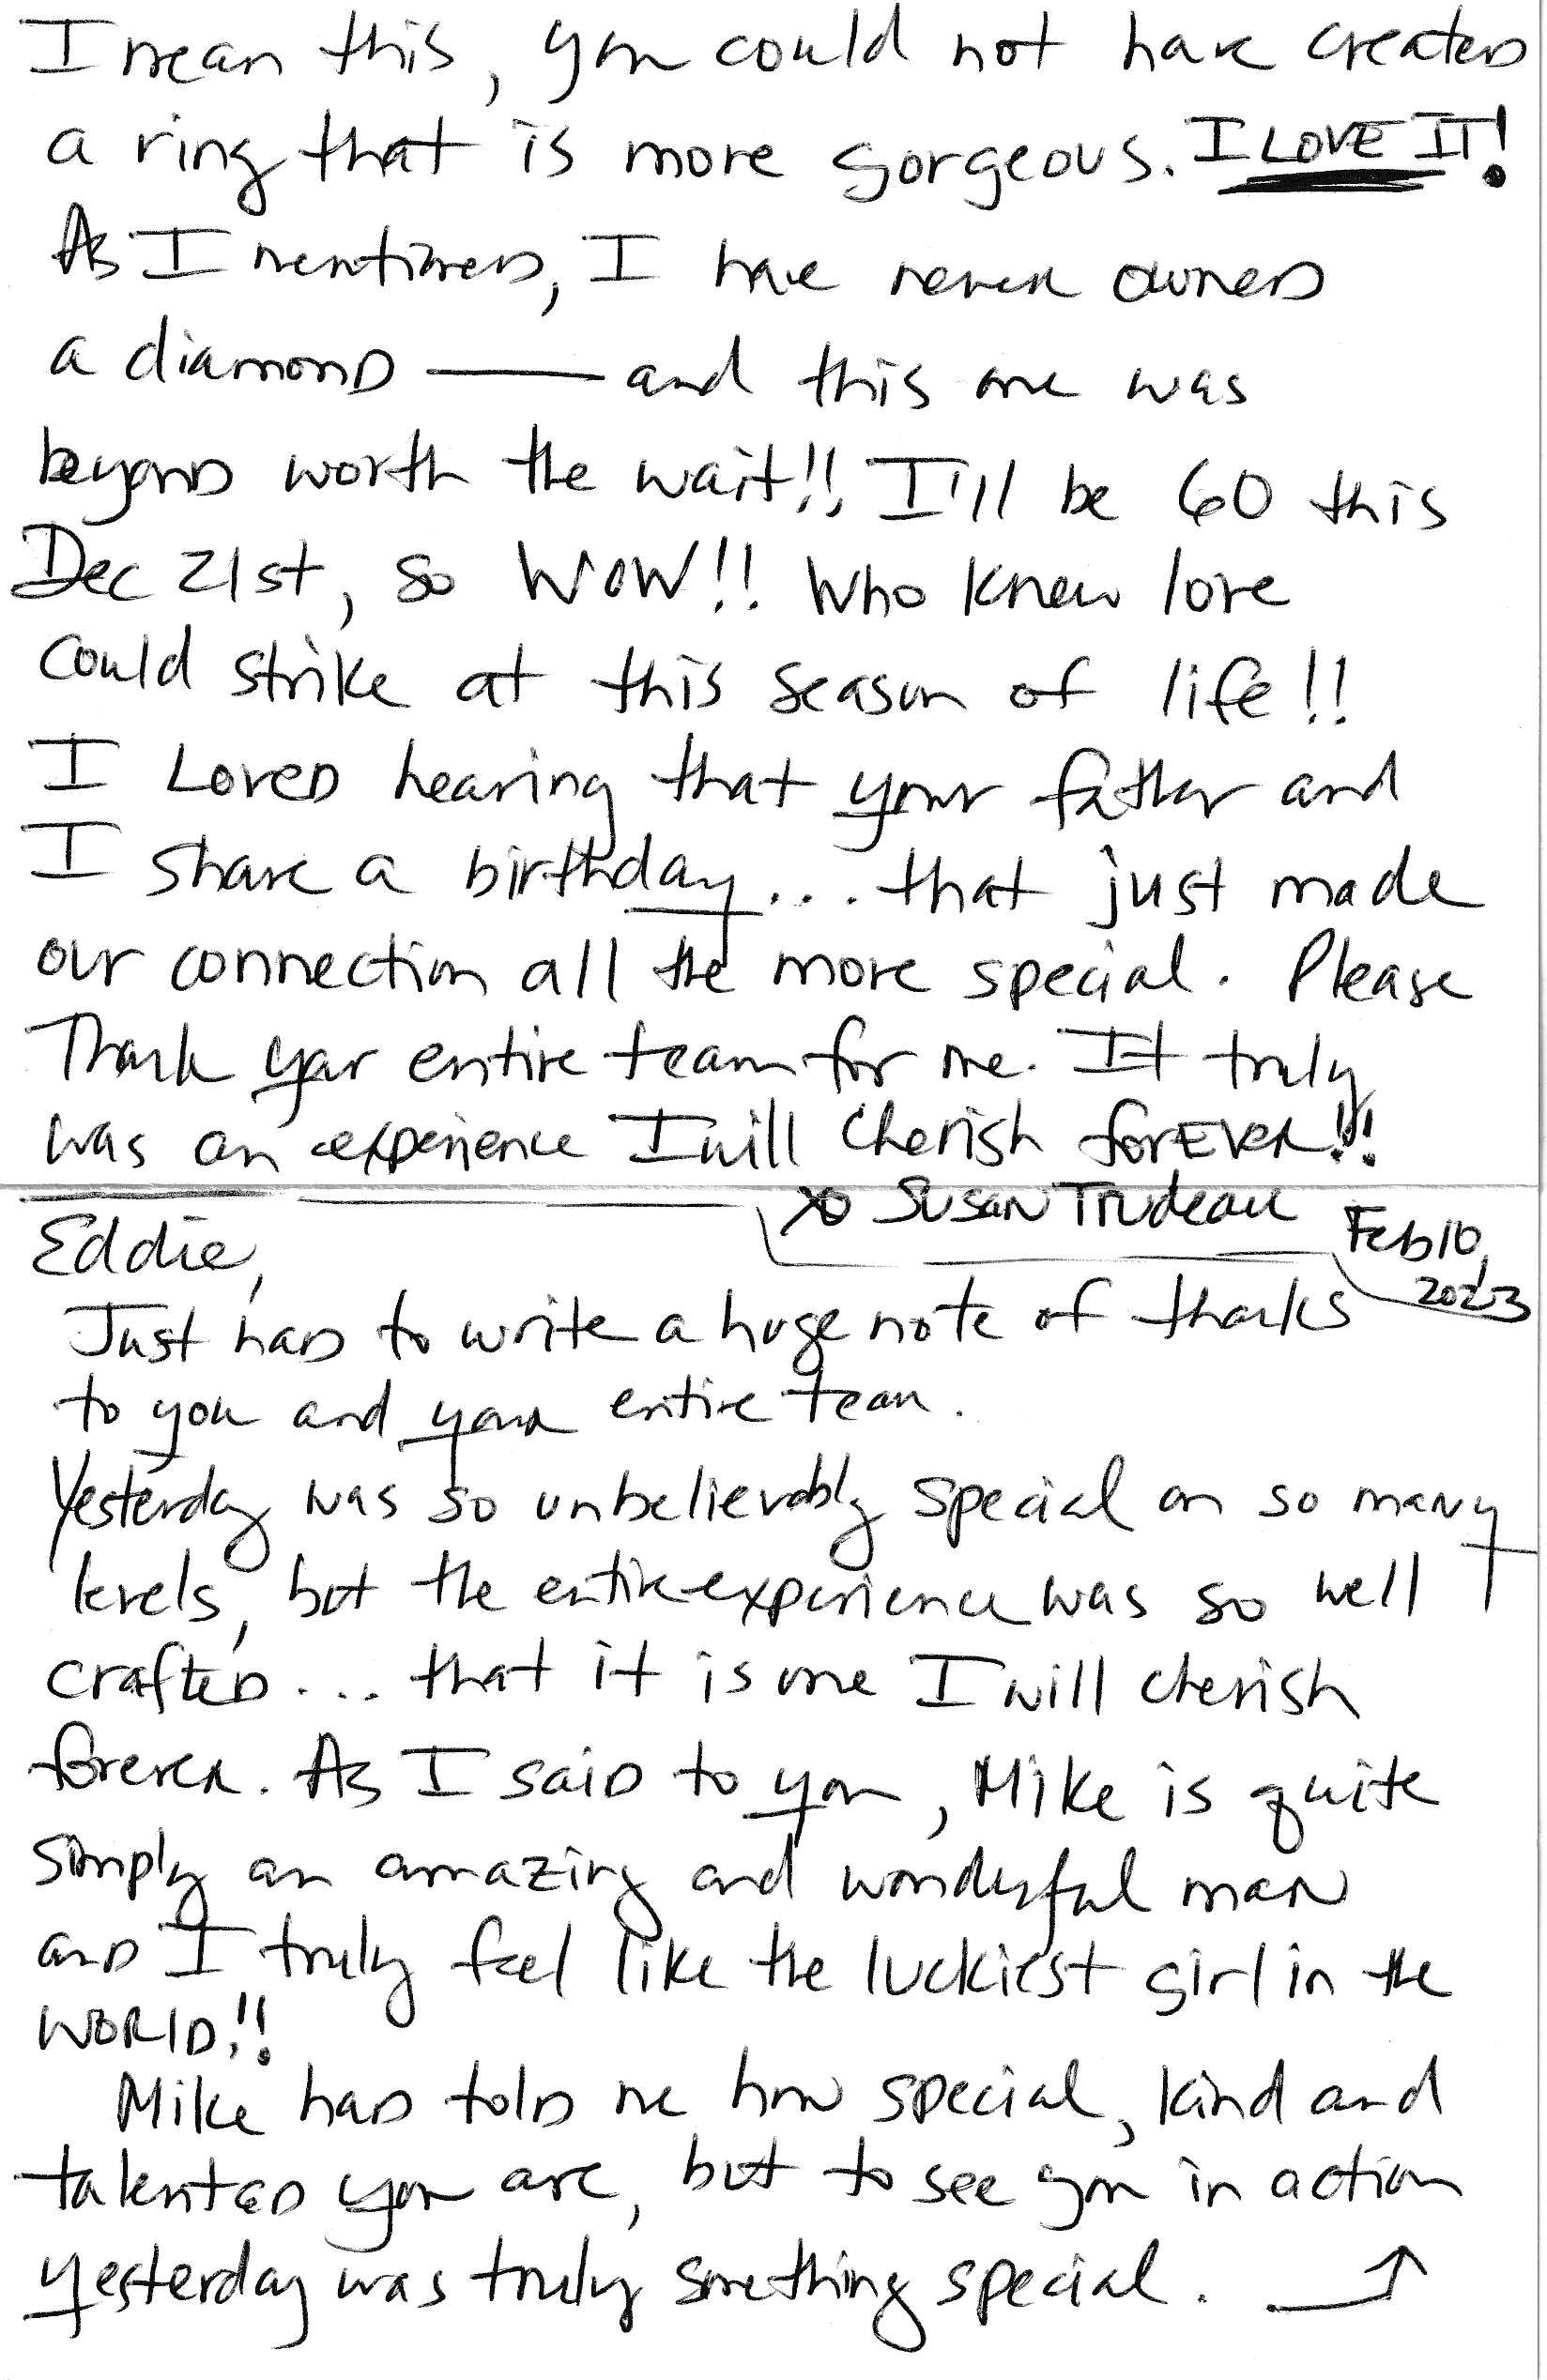 I mean this, you could not have created
a ring that is more gorgeous. I LOVE IT!
As I mentioned, I have never owned
a diamond — and this one was
beyond worth the wait!! I'll be 60 this
Dec 21st, so WOW!! Who knew love
could strike at this season of life!!
I Loved hearing that your father and
I share a birthday... that just made
our connection all the more special. Please
Thank your entire team for me. It truly
was an experience I will cherish forEVER!!
xo Susan Trudeau
Feb 10,
2023
Eddie,
Just had to write a huge note of thanks
to you and your entire team.
Yesterday was so unbelievably special on so many
levels, but the entire experience was so well
crafted... that it is one I will cherish
forever. As I said to you, Mike is quite
simply an amazing and wonderful man
and I truly feel like the luckiest girl in the
WORLD!!
Mike had told me how special, kind and
talented you are, but to see you in action
yesterday was truly something special. →